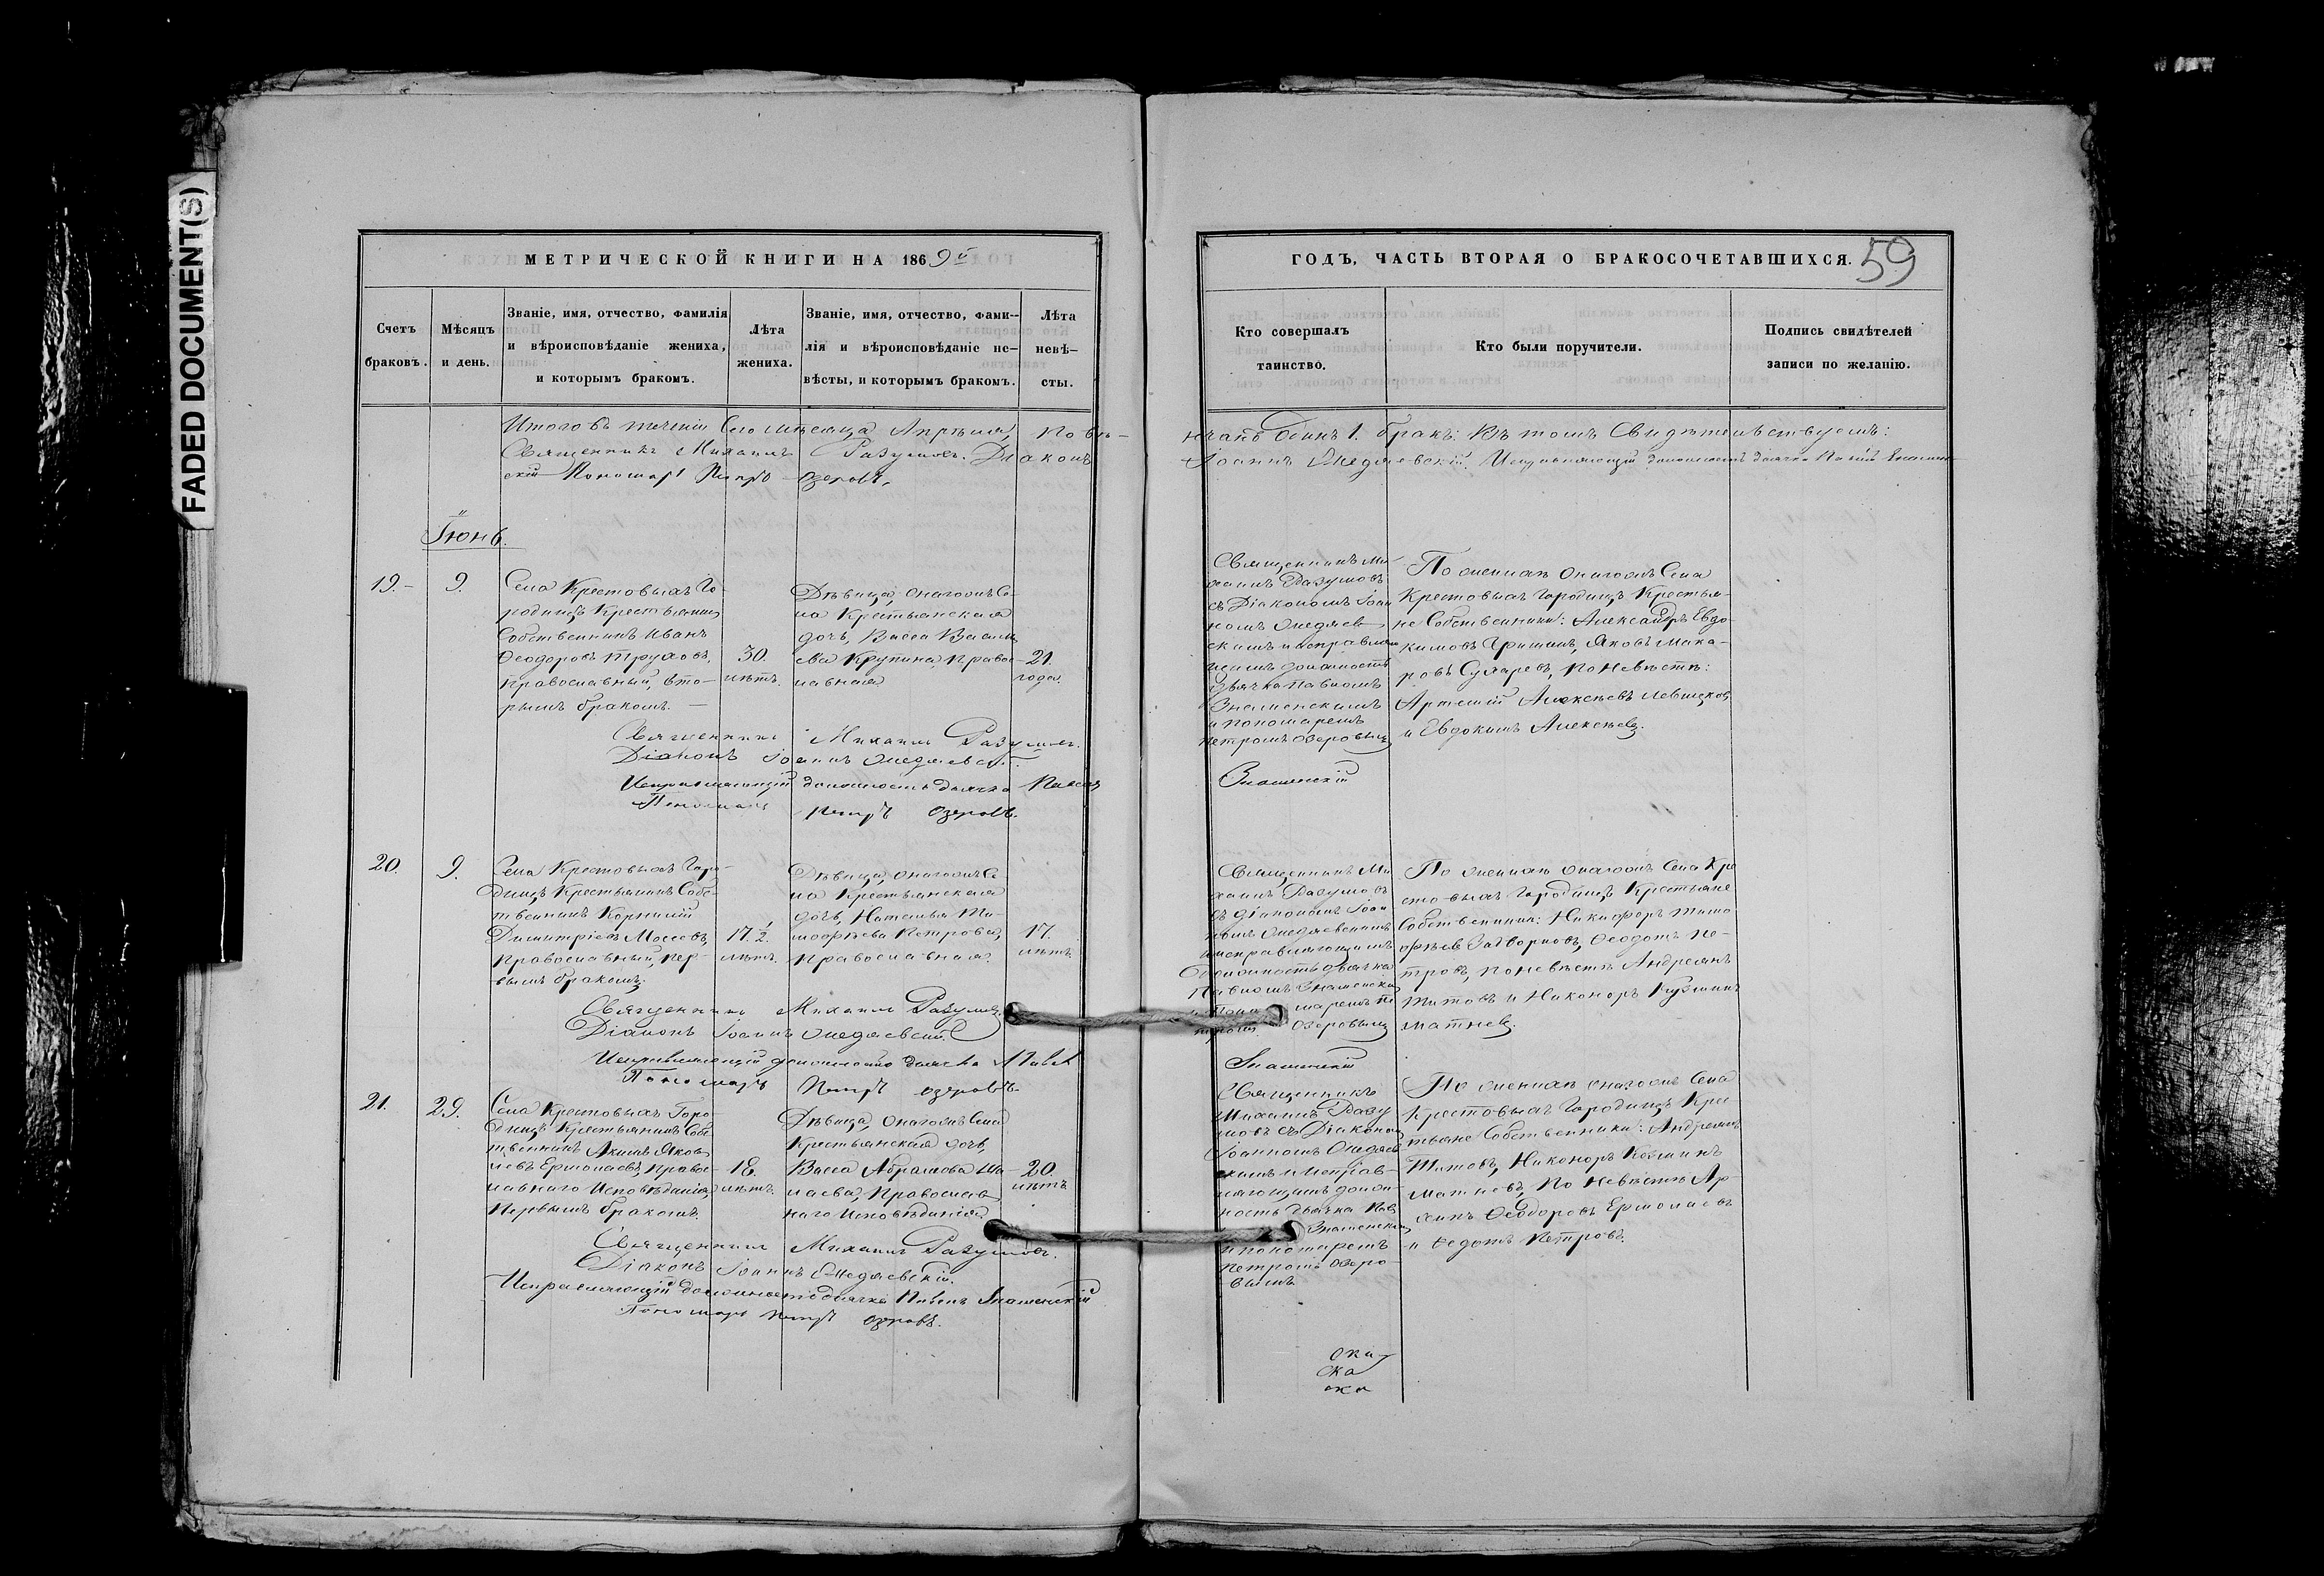 FADED DOCUMENT(S)
МЕТРИЧЕСКОЙ КНИГИ НА 1869й
Счетъ браковъ.
Мѣсяцъ и день.
Званіе, имя, отчество, фамилія и вѣроисповѣданіе жениха, и которымъ бракомъ.
Лѣта жениха.
Званіе, имя, отчество, фами-
лія и вѣроисповѣданіе не-
вѣсты, и которымъ бракомъ.
Лѣта невѣ-
сты.
Итого въ теченіи сего мѣсяца Апрѣля, повѣ-
Священникъ Михаилъ Разумовъ. Діаконъ
скій Пономарь Петръ Озеровъ.
Іюнь.
19.
9.
Села Крестовыхъ Го-
родищъ Крестьянинъ
Собственникъ Иванъ
Ѳеодоровъ Труховъ,
православный, вто-
рымъ бракомъ.
30.
лѣтъ.
Дѣвица, онагожъ Се-
ла Крестьянская
дочь, Васса Василь-
ева Крупина, право-
славная
21.
года.
Священникъ Михаилъ Разумовъ.
Діаконъ Іоаннъ
Исправляющій должность дьячка Павелъ
Пономарь Петръ Озеровъ.
20.
9.
Села Крестовыхъ Горо-
дищъ Крестьянинъ Собс-
твенникъ Корнилій
Димитріевъ Мосевъ,
Православный, пер-
вымъ бракомъ.
17. 1/2.
лѣтъ.
Дѣвица, онагожъ Се-
ла Крестьянская
дочь, Наталья Ти-
моѳѣева Петрова,
православная.
17.
лѣтъ
Священникъ Михаилъ Разумовъ.
Діаконъ Іоаннъ
Исправляющій должность дьячка Павелъ
Пономарь Петръ Озеровъ.
21.
29.
Села Крестовыхъ Горо-
дищъ Крестьянинъ Собс-
твенникъ Акимъ Яков-
левъ Ермолаевъ, право-
славнаго Исповѣданія,
первымъ бракомъ.
18.
лѣтъ.
Дѣвица, онагожъ Села
Крестьянская дочь,
Васса Абрамова
Православ-
наго Исповѣданія.
20.
лѣтъ
Священникъ Михаилъ Разумовъ.
Діаконъ Іоаннъ
Исправляющій должность дьячка Павелъ Знаменскій
Пономарь Петръ Озеровъ.
ГОДЪ, ЧАСТЬ ВТОРАЯ О БРАКОСОЧЕТАВШИХСЯ.
59
Кто совершалъ таинство.
Кто были поручители.
Подпись свидѣтелей записи по желанію.
нчанъ Одинъ 1. бракъ: Въ томъ Свидѣтельствуемъ:
Іоаннъ Исправляющій должность дьячка Павелъ Знамен-
Священникъ Ми-
хаилъ Разумовъ
съ Діакономъ Іоан-
номъ
скимъ и исправля-
ющимъ должность
дьячка Павломъ
Знаменскимъ
и пономаремъ
Петромъ Озеровымъ
Знаменскій
По женихѣ онагожъ Села
Крестовыхъ Городищъ Крестья-
не Собственники: Александръ Евдо-
кимовъ Гришинъ, Яковъ Мака-
ровъ Сухаревъ, по невѣстѣ:
Артемій Алексѣевъ
и Евдокимъ Алексѣевъ.
Священникъ Ми-
хаилъ Разумовъ
съ діакономъ Іоан-
номъ
исправляющимъ
должность дьячка
Павломъ Знаменскимъ
и Поно маремъ Пе
тромъ Озеровымъ
Знаменскій
По женихѣ онагожъ Села Кре
стовыхъ Городищъ Крестьяне
Собственники: Никифоръ Тимо
ѳѣевъ Задворновъ, Ѳеодотъ Пе-
тровъ, по невѣстѣ Андреянъ
Титовъ и Никоноръ Кузминъ
Матвѣевъ.
Священникъ
Михаилъ Разу
мовъ съ Діакономъ
Іоанномъ
скимъ и исправ-
ляющимъ долж-
ность дьячка Пав
Знаменскимъ
и пономаремъ
Петромъ Озеро-
вымъ
По женихѣ онагожъ Села
Крестовыхъ Городищъ Крес-
тьяне Собственники: Андреянъ
Титовъ, Никоноръ Козминъ
по невѣстѣ Ар-
хипъ Ѳеодоровъ Ермолаевъ
и Ѳедотъ Петровъ.